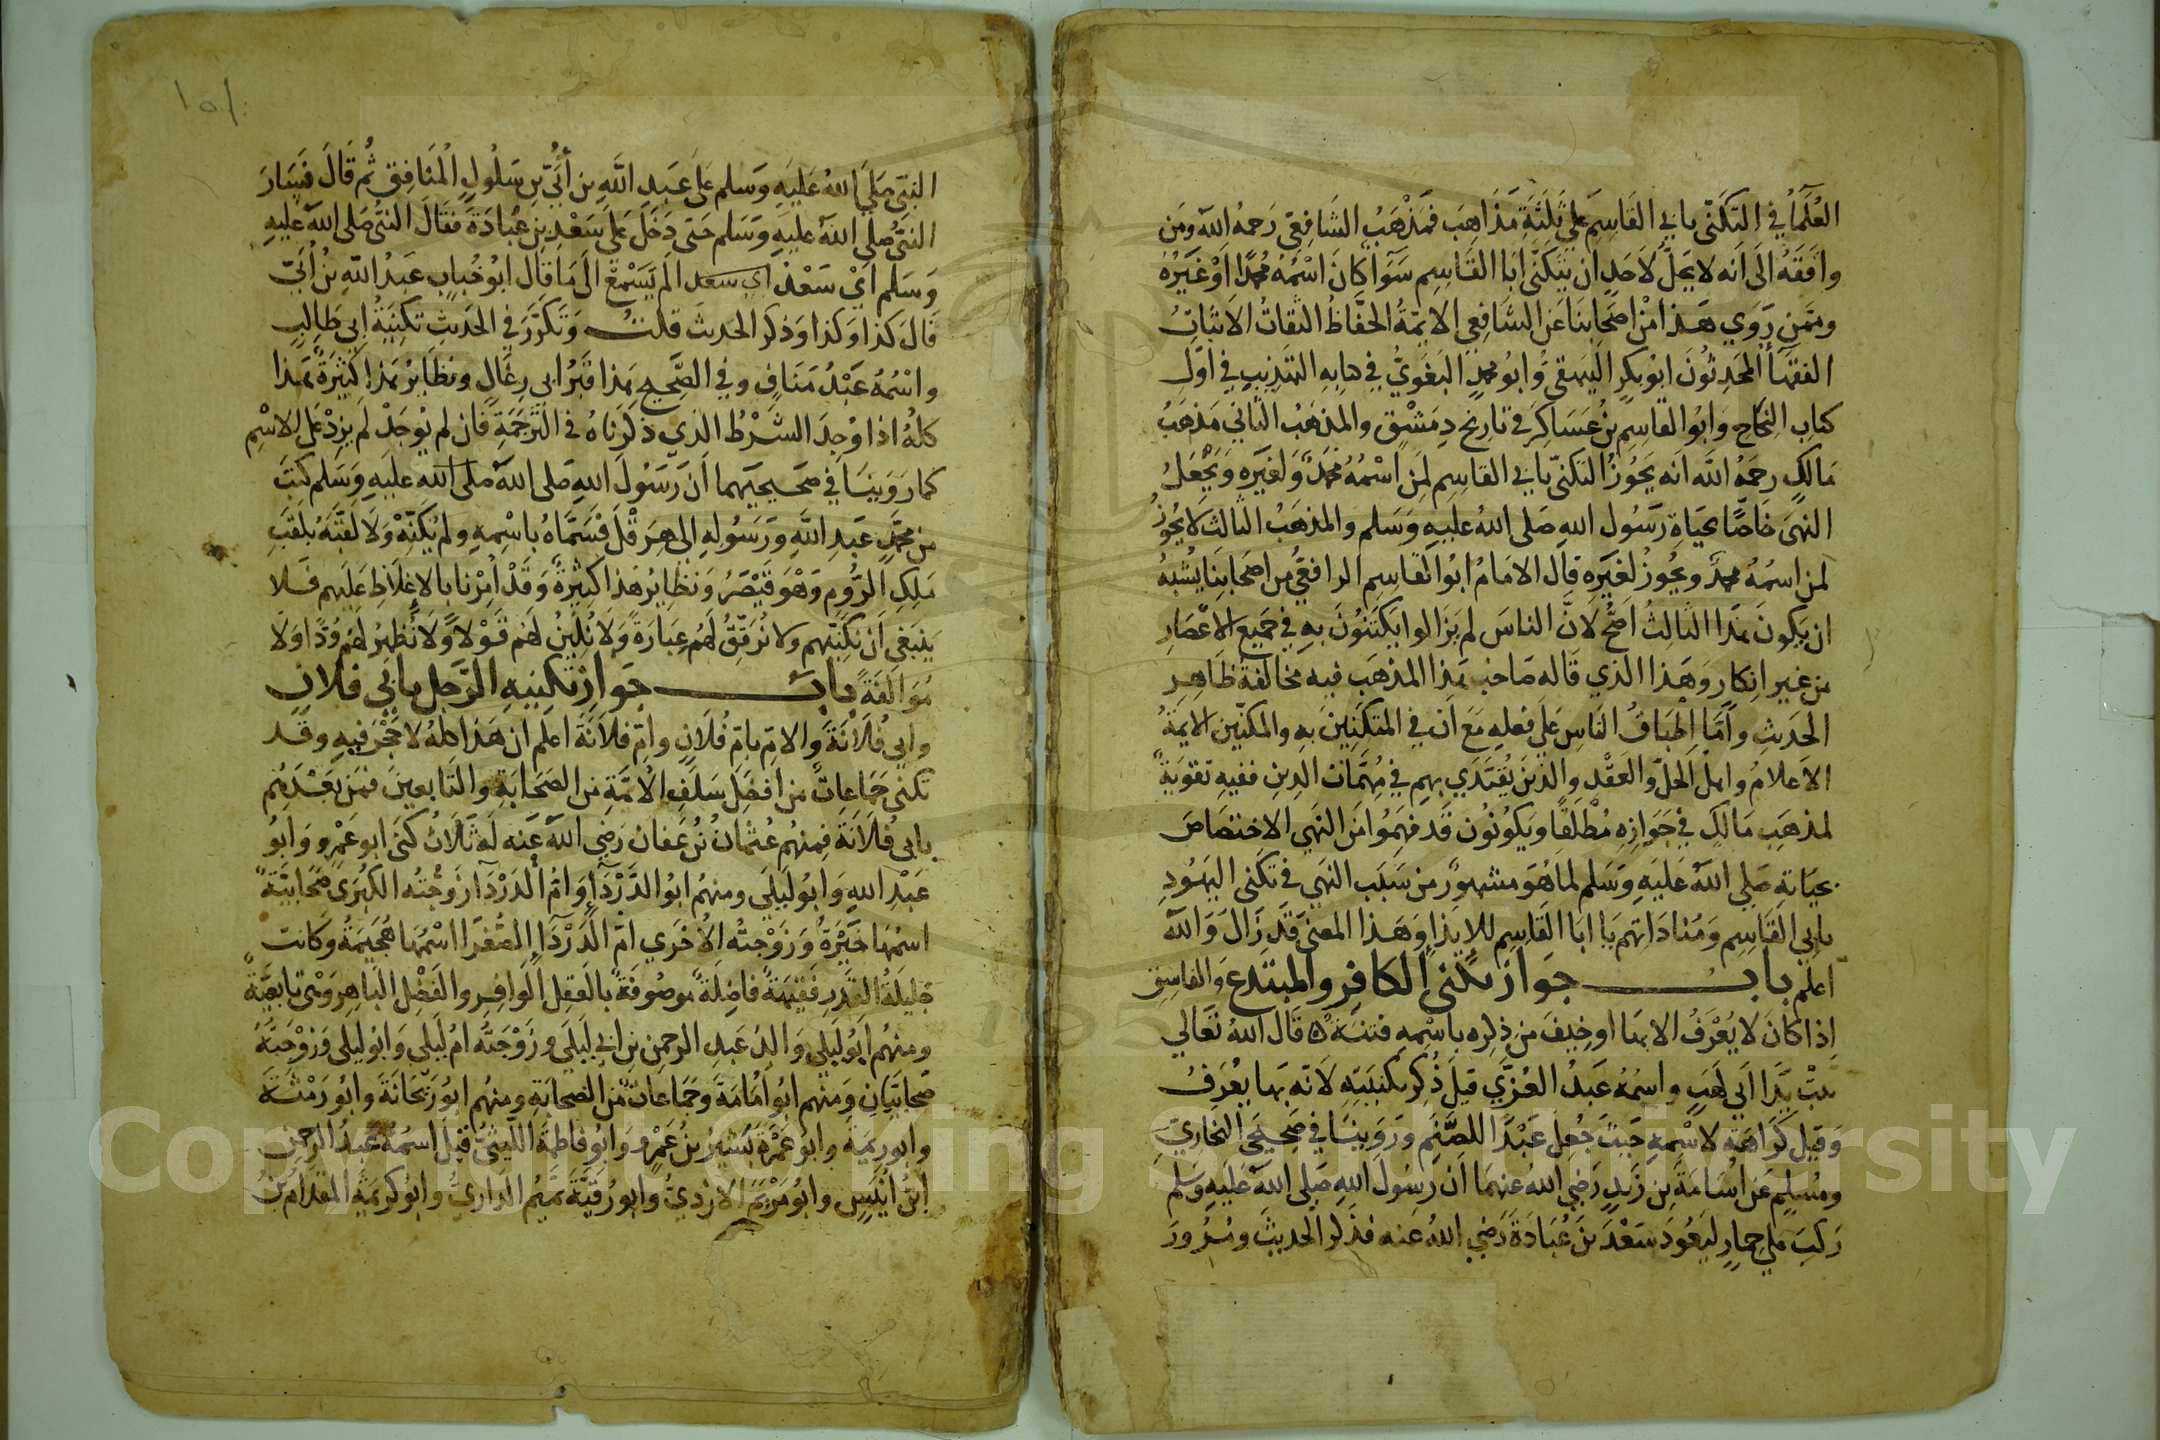 العلماء في التكني بابي القاسم على ثلثة مذاهب فمذهب الشافعي رحمه الله ومن
وافقه الى انه لا يحل لاحد ان يتكنى ابا القاسم سواء كان اسمه محمدا او غيره
وممن روي هذا من اصحابنا عن الشافعي الايمة الحفاظ الثقات الاثبات
الفقهاء المحدثون ابو بكر البيهقي وابو محمد البغوي في كتابه التهذيب في اول
كتاب النكاح وابو القاسم بن عساكر في تاريخ دمشق والمذهب الثاني مذهب
مالك رحمه الله انه يجوز التكني بابي القاسم لمن اسمه محمد ولغيره ويجعل
النهى خاصا بحياة رسول الله صلى الله عليه وسلم والمذهب الثالث لا يجوز
لمن اسمه محمد ويجوز لغيره قال الامام ابو القاسم الرافعي من اصحابنا يشبه
ان يكون هذا الثالث اصح لان الناس لم يزالوا يكتنون به في جميع الاعصار
من غير انكار وهذا الذي قاله صاحب هذا المذهب فيه مخالفة ظاهر
الحديث واما اطباق الناس على فعله مع ان في المتكنين به والمكنين الايمة
الاعلام واهل الحل والعقد والذين يقتدي بهم في مهمات الدين ففيه تقوية
لمذهب مالك في جوازه مطلقا ويكونون قد فهموا من النهي الاختصاص
بحياته صلى الله عليه وسلم لما هو مشهور من سبب النهي في تكنى اليهود
بابي القاسم ومناداتهم يا ابا القاسم للايذاء وهذا المعنى قد زال والله
اعلم باب جواز تكنى الكافر والمبتدع والفاسق
اذا كان لا يعرف الا بها او خيف من ذكره باسمه فتنة قال الله تعالى
تبت يدا ابي لهب واسمه عبد العزي قيل ذكر بكنيته لانه بها يعرف
وقيل كراهة لاسمه حيث جعل عبدا للصنم وروينا في صحيحي البخاري
ومسلم عن اسامة بن زيد رضي الله عنهما ان رسول الله صلى الله عليه وسلم
ركب على حمار ليعود سعد بن عبادة رضي الله عنه فذكر الحديث ومرور
١٥١
النبي صلى الله عليه وسلم على عبد الله بن أبي بن سلول المنافق ثم قال فسار
النبي صلى الله عليه وسلم حتى دخل على سعد بن عبادة فقال النبي صلى الله عليه
وسلم اي سعد اي سعد الم تسمع الى ما قال ابو حباب عبد الله بن أبي
قال كذا وكذا وذكر الحديث قلت وتكرر في الحديث تكنية ابي طالب
واسمه عبد مناف وفي الصحيح هذا قبر ابي رغال ونظاير هذا كثيرة هذا
كله اذا وجد الشرط الذي ذكرناه في الترجمة فان لم يوجد لم يزد على الاسم
كما روينا في صحيحيهما ان رسول الله صلى الله عليه وسلم كتب
من محمد عبد الله ورسوله الى هرقل فسماه باسمه ولم يكنه ولا لقبه بلقب
ملك الروم وهو قيصر ونظاير هذا كثيرة وقد أمرنا بالاغلاظ عليهم فلا
ينبغي ان نكنيهم ولا نرقق لهم عبارة ولا نلين لهم قولا ولا نظهر لهم ودا ولا
مؤالفة باب جواز تكنيه الرجل بابي فلان
وابي فلانة والام بام فلان وام فلانة اعلم ان هذا كله لا حجر فيه وقد
تكنى جماعات من افضل سلف الامة من الصحابة والتابعين فمن بعدهم
بابي فلانة فمنهم عثمان بن عفان رضي الله عنه له ثلاث كنى ابو عمرو وابو
عبد الله وابو ليلى ومنهم ابو الدرداء وام الدرداء زوجته الكبرى صحابية
اسمها خيرة وزوجته الاخري ام الدرداء الصغرا اسمها هجيمة وكانت
جليلة القدر فقيهة فاضلة موصوفة بالعقل الوافر والفضل الباهر وهي تابعية
ومنهم ابو ليلى والد عبد الرحمن بن ابي ليلى وزوجته ام ليلى وابو ليلى وزوجته
صحابيان ومنهم ابو امامة وجماعات من الصحابة ومنهم ابو ريحانة وابو رمثة
وابو ريمة وابو عمرة بشير بن عمرو وابو فاطمة الليثي قيل اسمه عبد الرحمن
ابن انيس وابو مريم الازدي وابو رقية تميم الداري وابو كريمة المقدام بن
Copyright © King Saud University